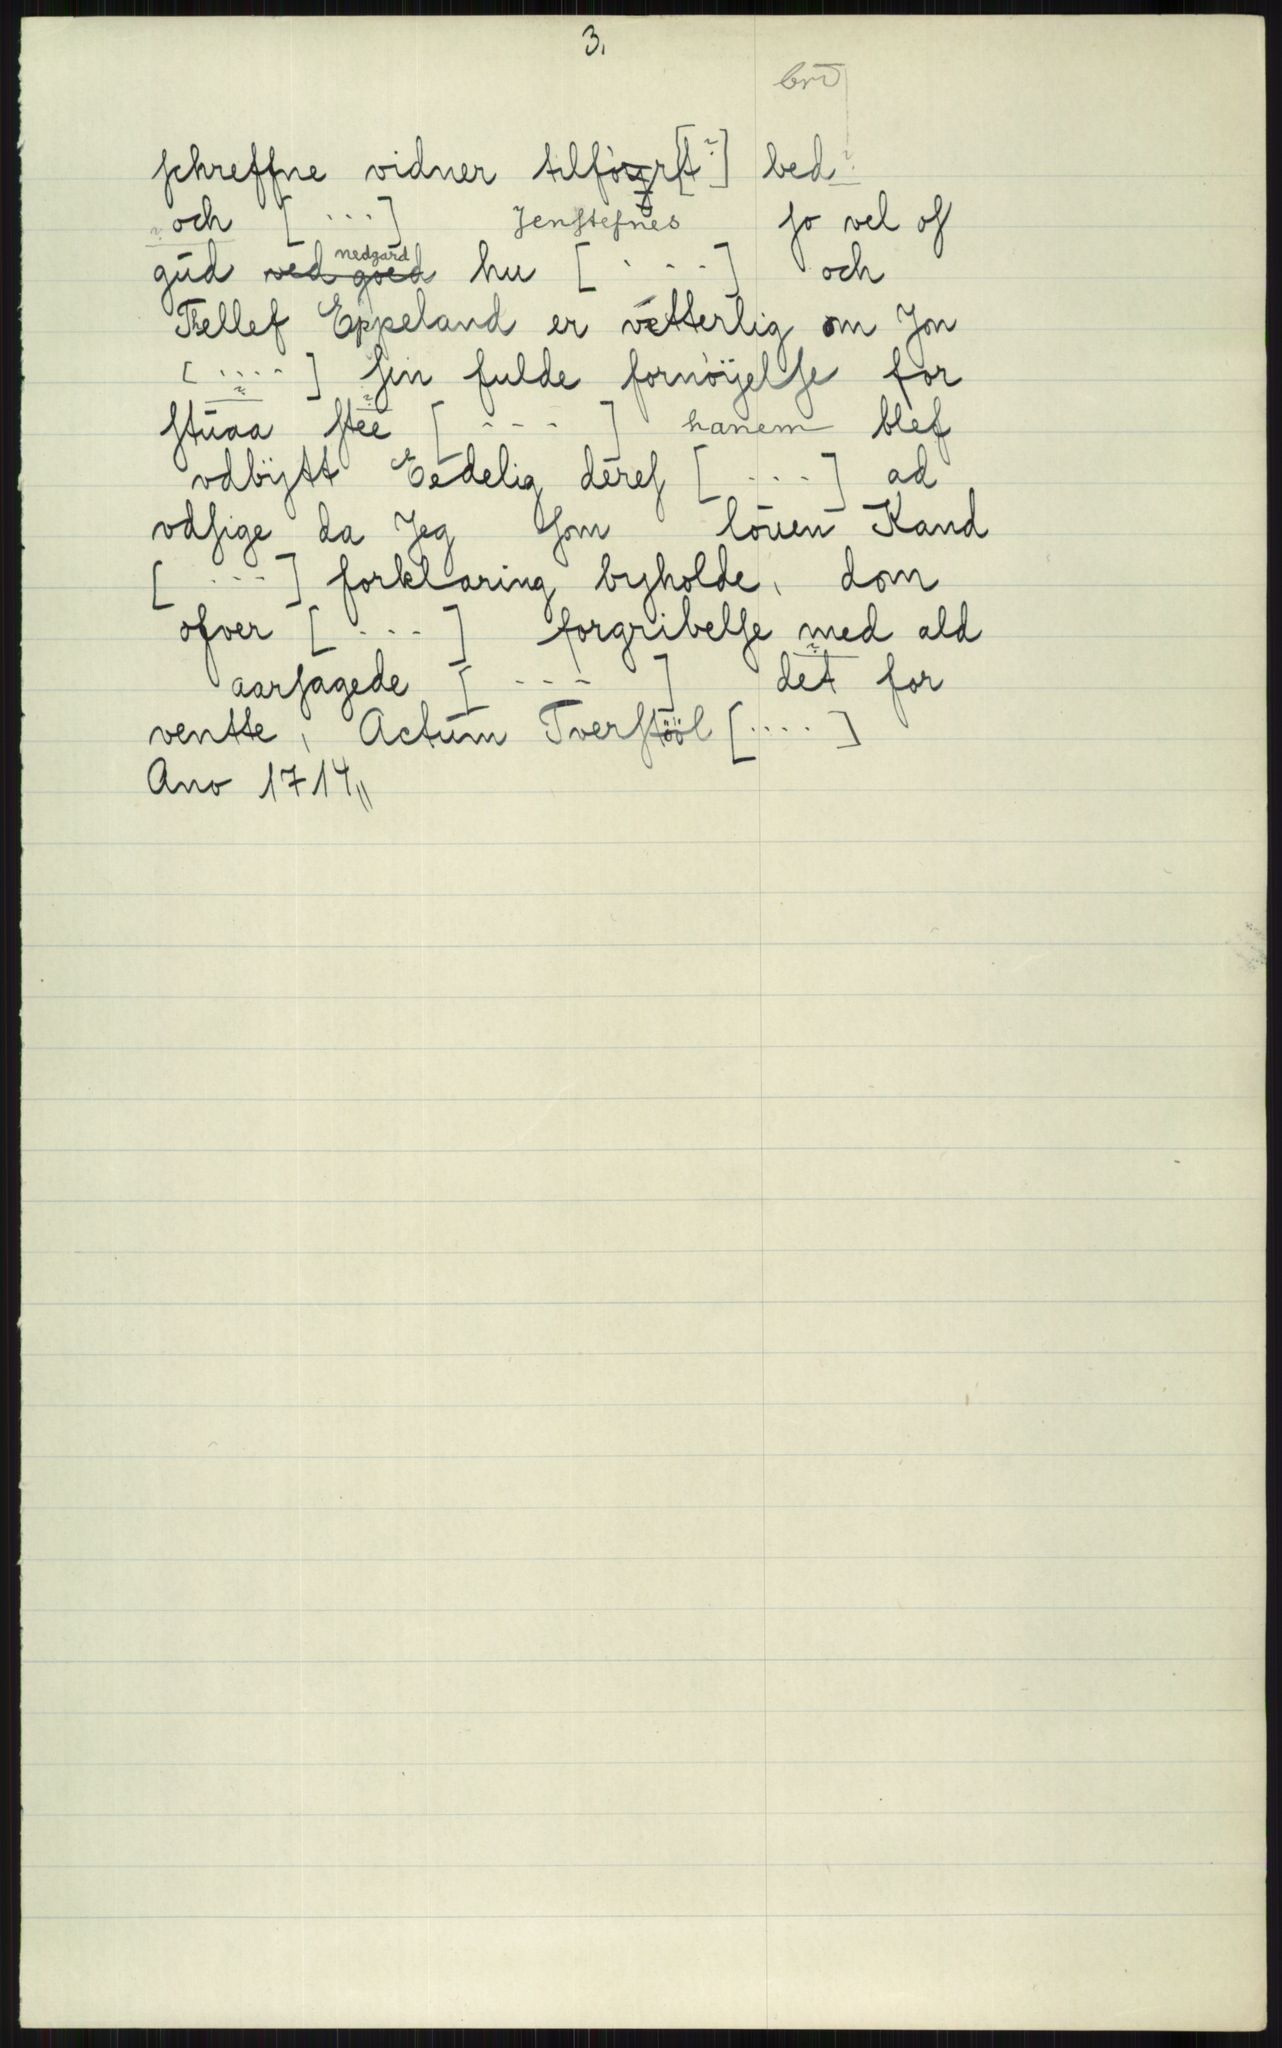 3.
schreffne vidner tilförst [?] bed ?
? och [ ... ] Jenstefnes so vel of
nedgard
gúd ved goed hu [ . - - ] och
Tellef Eppeland er vetterlig om Jon
[ .... ] sin fulde fornöÿelse for
stúaa stee [ - - - ] hanem blef
vdbÿtt Eedelig deres [ ... ] ad
vdsige da Jeg som loúen Kand
[ ... ] forklaring byholde, dom
ofver [ . - - ] forgribelse med ald
aarsagede [ - - - ] det for
ventte, Actúm Tverstööl [ .... ]
Ano 1714 "